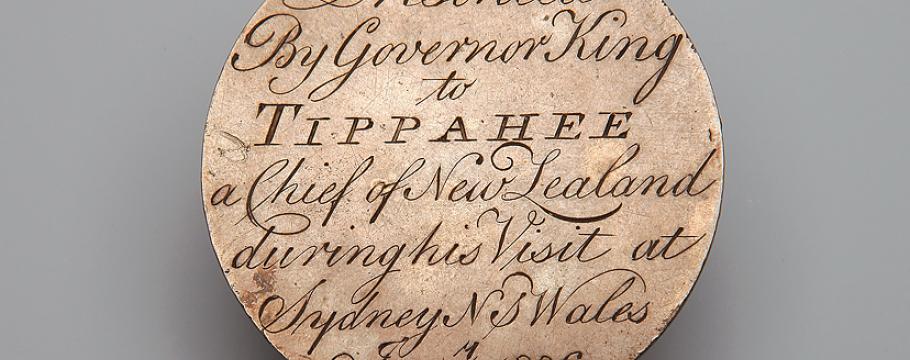 Presented
By Governor King
to
TIPPAHEE
a Chief of New Zealand
during his Visit at
Sydney N S Wales